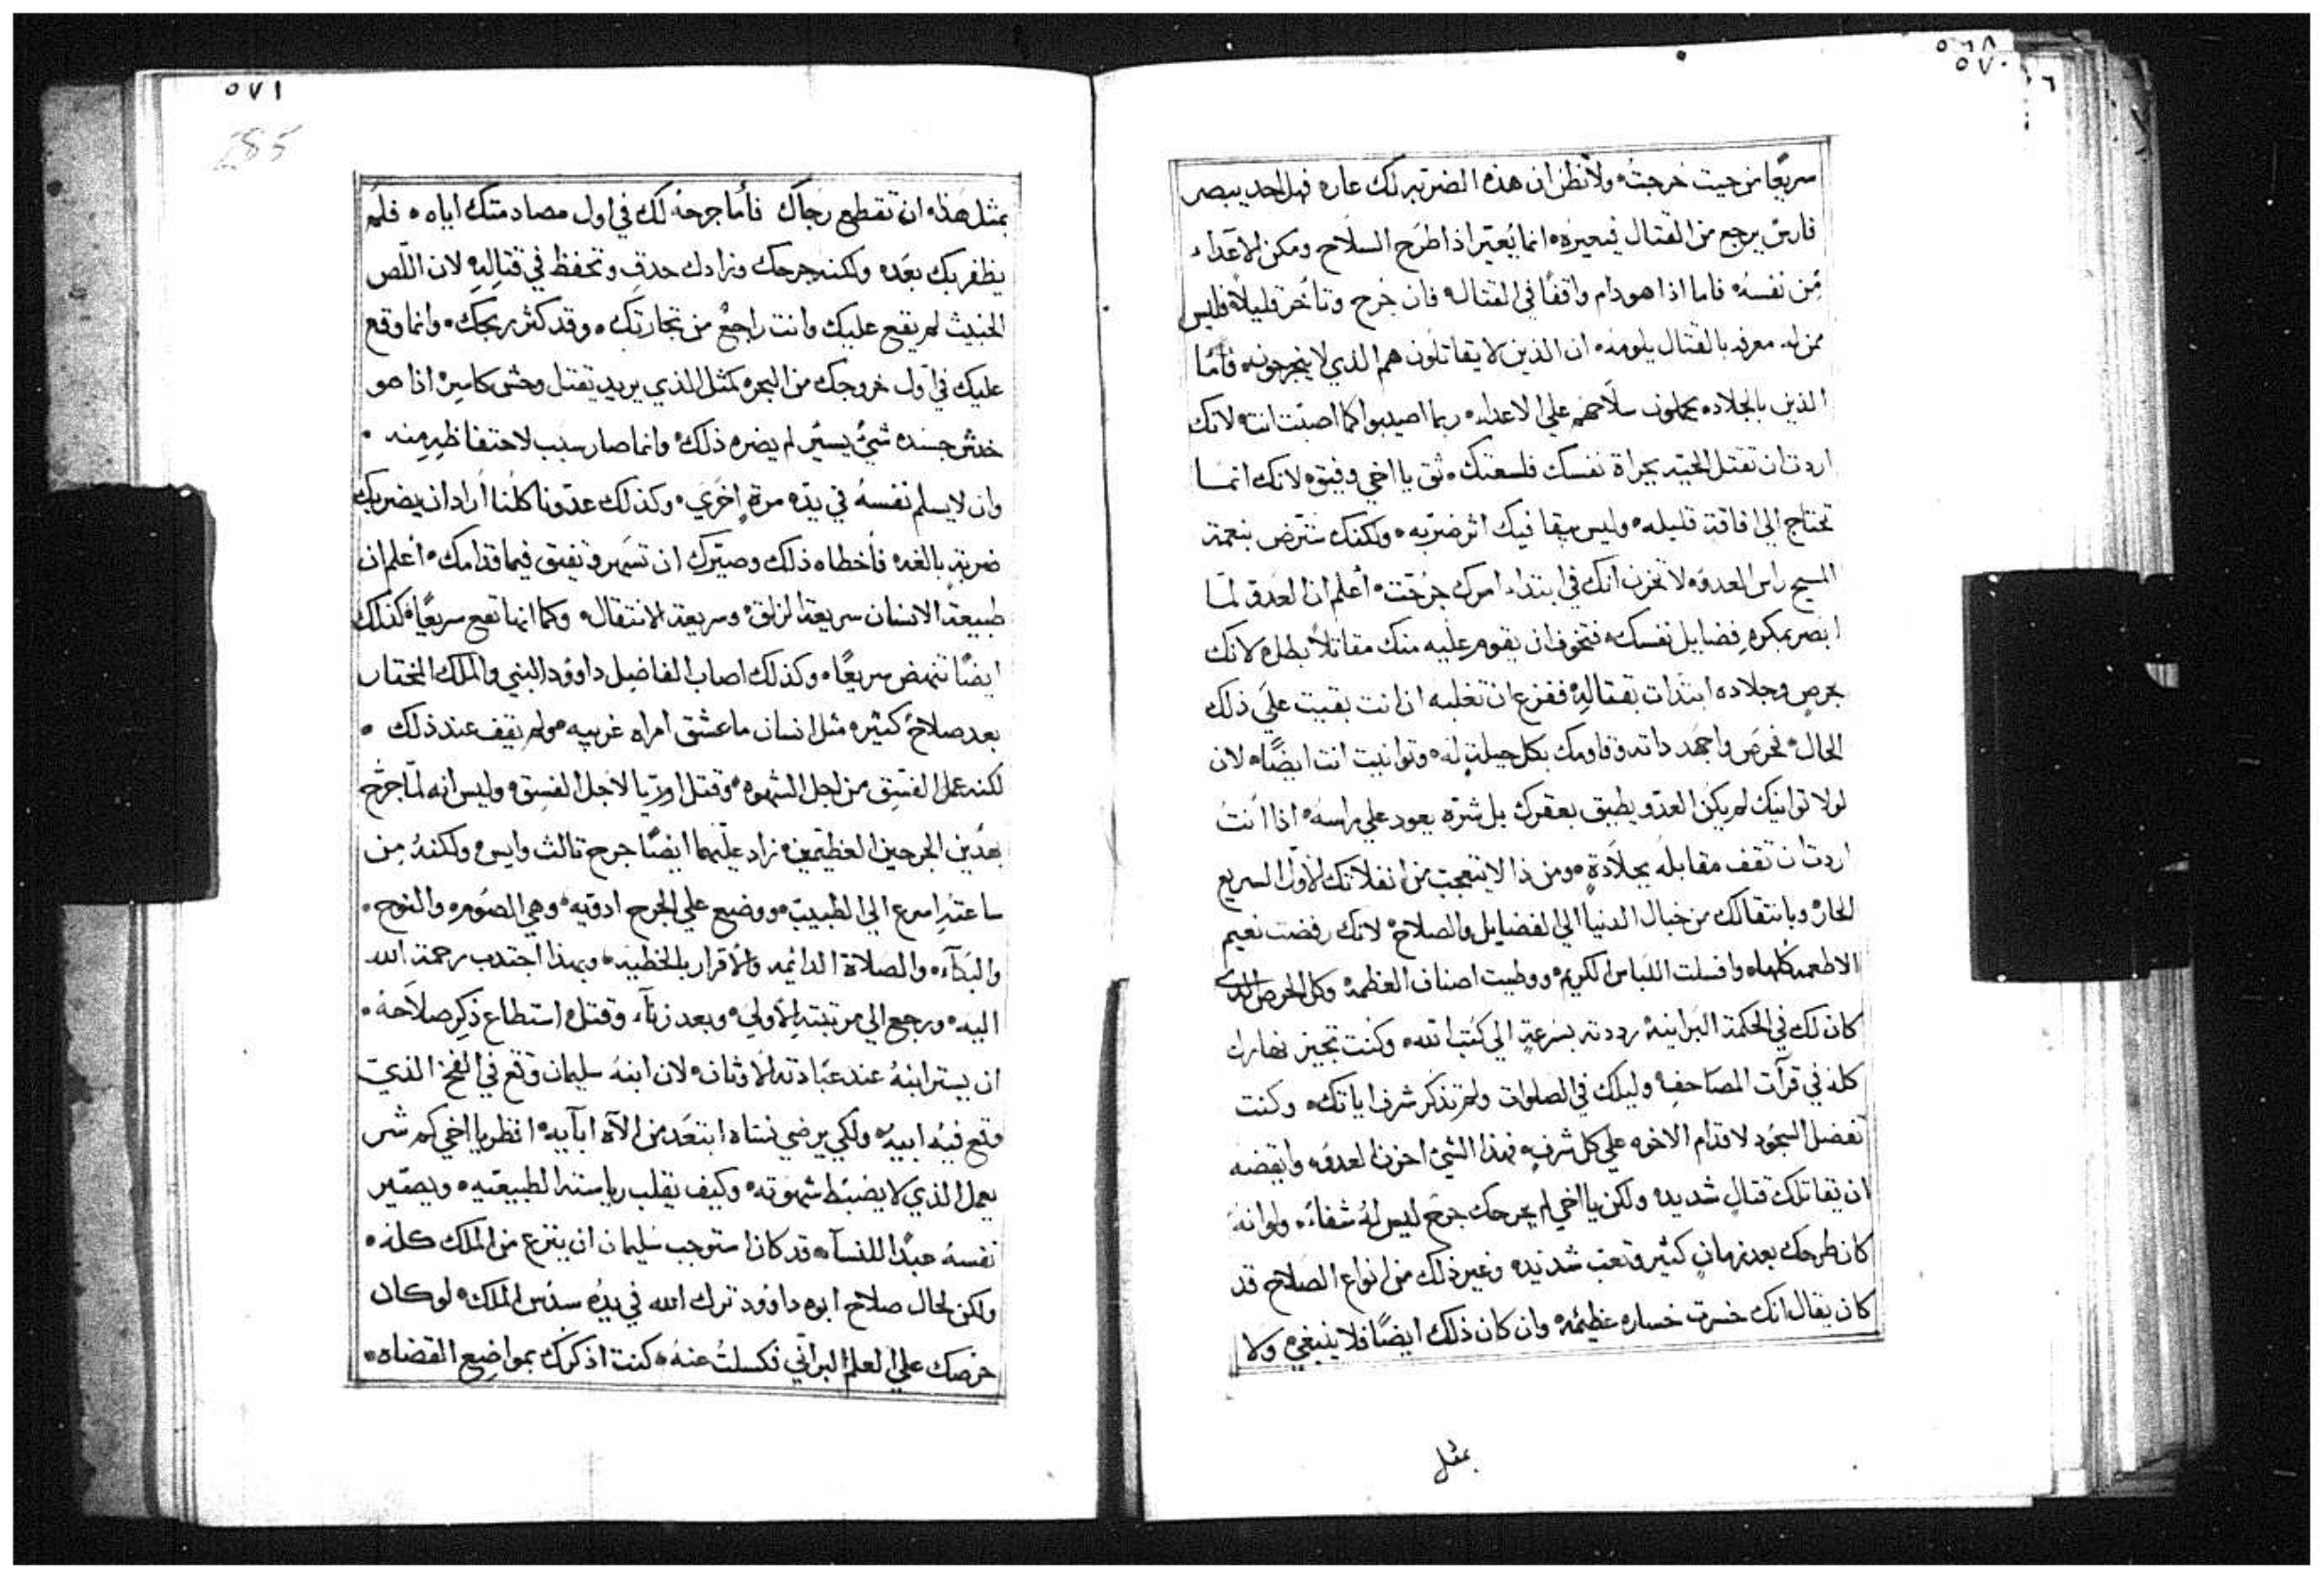 ٥٦٨
٥٧٠
سريعًا من حيث خرجت، ولا تظن ان هذه الضربه لك عاره فهل احد يبصر
فارس يرجع من القتال فيعيره، انما يُعيَّر اذا طرح السلاح ومكن الاعداء
مِن نفسهُ، فاما اذا هو دام واقفًا في القتال، فان جُرح وتأخر قليلاً، فليس
ممن له معرفه بالقتال يلومه، ان الذين لا يقاتلون هم الذي لا ينجرحون، فأما
الذين بالجلاده يحملون سلاحهم علي الاعداء، ربما اصيبوا كما اصبت انت، لانك
اردت ان تقتل الحيه بجراة نفسك فلسعتك، ثق يا اخي وفيق، لانك انما
تحتاج الي افاقة قليله، وليس يبقا فيك اثر ضربه، ولكنك سترض بنعمة
المسيح راس العدو، لا تحزن انك في ابتداء امرك جُرحت، أعلم ان العدو لما
ابصر بمكره فضايل نفسك، فتخوف ان يقوم عليه منك مقاتلاً بطل، لانك
بحرصٍ وجلاده ابتدات بقتاله، ففزع ان تغلبه ان انت بقيت علَي ذلك
الحال، فحرصَ واجهد ذاته وقاومك بكل حيلةٍ له، وتوانيت انت ايضًا، لان
لولا توانيك لم يكن العدو يطيق بعقرك بل شره يعود علي راسه، اذا انت
اردت ان تقف مقابله بجلادةٍ، ومن ذا لا يتعجب من انفلاتك الاول السريع
الحار، وبانتقالك من خيال الدنيا الي الفضايل والصلاح، لانك رفضت نعيم
الاطعمه كلها، وافسلت اللباس الكريم، ووطيت اصناف العظمه، وكل الحرص الذي
كان لك في الحكمة البرانيه، رددته بسرعةٍ الي كتب الله، وكنت تجيز نهارك
كله في قرآت المصاحف، وليلك في الصلوات ولم تذكر شرف اباتك، وكنت
تفضل السجود لاقدام الاخوه علي كل شرفٍ، فهذا الشي احزن العدو، وايقضه
ان يقاتلك قتالٍ شديد، ولكن يا اخي لم يجرحك جرح ليس لهُ شفاء، ولو انه
كان طرحك بعد زمانٍ كثير وتعب شديد، وغير ذلك من انواع الصلاح قد
كان يقال انك خسرت خساره عظيمه، وان كان ذلك ايضًا فلا ينبغي، ولا
بمثل
٥٧١
285
بمثل هذا، ان تقطع رجاك فأما جرحهُ لك في اول مصادمتك اياه، فلم
يظفر بك بعَده ولكنه جرحك وزادك حدقٍ وتحفظ في قتالِهِ لان اللّص
الخبيث لم يقع عليك وانت راجعٌ من تجارتك، وقد كثر ربحك، وانما وقع
عليك في اول خروجك من البحره كمثل الذي يريد يقتل وحش كاسره اذا هو
خدش جسده شيٌ يسير لم يضره ذلك، وانما صار سبب لاحتفاظهِ منه،
وان لا يسلم نفسهُ في يده مرةٍ اخرَي، وكذلك عدونا كلُنا أراد ان يضربك
ضربةٍ بالغه فأخطاه ذلك وصيّرك ان تسَهر وتفيق فيما قدامك، أعلم ان
طبيعة الانسان سريعة الزلق، وسريعة الانتقال، وكما انها تقع سريعًا، كذلك
ايضًا تنهض سريعًا، وكذلك اصاب الفاضل داوود النبي والملك المختار
بعد صلاحٌ كثيره مثل انسان ما عشق امراه غريبه، ولم يقف عند ذلك،
لكنه عمل الفسِق من اجل الشهوه، وقتل اوريا لاجل الفسِق، وليس انه لمّا جُرح
بهدّين الجرحين العظيمين، زاد عليهما ايضًا جرح تالت وايس، ولكنهُ مِن
ساعتهِ اسرع الي الطبيب، ووضع علي الجرح ادويه، وهي الصوم، والنوح،
والبكآء، والصلاة الدائمه والاقرار بالخطيه، وبهذا اجتدب رحمة الله
اليه، ورجع الي مرتبته الاولي، وبعد زنآء، وقتل، استطاع ذِكر صلاحهُ،
ان يستر ابنهُ عند عبَادته الاوثان، لان ابنهَ سليمان وقع في الفخ الذي
وقع فيهُ ابيه، ولكي يرضي نساه ابتعَد من الآه ابآيه، انظر يا اخي كم شر
يعمل الذي لا يضبط شهوته، وكيف يقلب رياسته الطبيعيه، ويصيّر
نفسهُ عبدًا للنسآ، قد كان استوجب سُليمان ان ينزع من الملك كله،
ولكن لحال صلاح ابوه داوود ترك الله في يدُه سدُس الملك، لو كان
حرصك علي العلم البرانّي فكسلتُ عنهُ، كنت اذكرك بمواضِع القضاه،